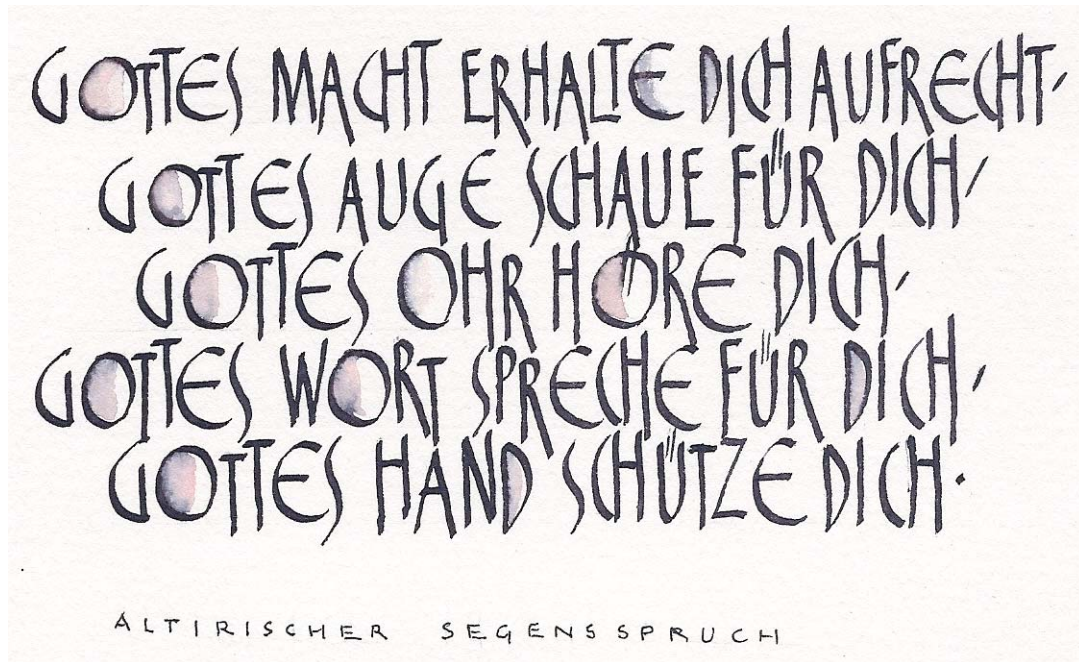 GOTTES MACHT ERHALTE DICH AUFRECHT,
GOTTES AUGE SCHAUE FÜR DICH,
GOTTES OHR HÖRE DICH,
GOTTES WORT SPRECHE FÜR DICH,
GOTTES HAND SCHÜTZE DICH.
ALTIRISCHER SEGENSSPRUCH